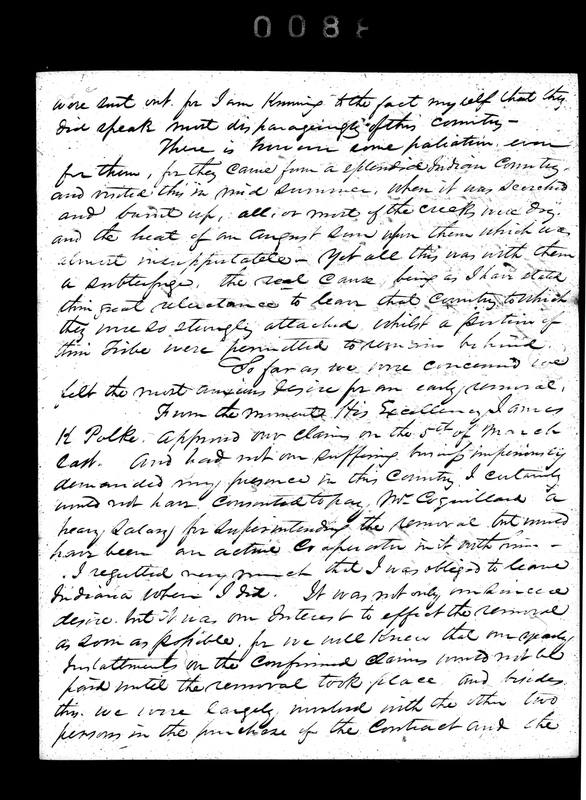 0088
were sent out. for I am Knowing to the fact myself that they
did speak most disparagingly of this Country –
There is however some paliation even
for them, for they came from a splendid Indian Country.
and visited this in mid summer, when it was scorched
and burnt up, all, or most of the creeks were dry.
and the heat of an August Sun upon them which was
almost insupportable – Yet all this was with them
a subterfuge, the real cause being as I have stated
their great reluctance to leave that Country to which
they were so strongly attached whilst a portion of
their Tribe were permitted to remain behind.
So far as we were concerned we
felt the most anxious desire for an early removal.
From the moment His Excellency James
K Polke. approved our claims on the 5th of March
last. And had not our suffering business imperiously
demanded my presence in this Country, I certainly
would not have consented to pay Mr Coquillard a
heavy Salary for Superintending the removal but would
have been an active Co operator in it with him –
I regretted very much that I was obliged to leave
Indiana when I did. It was not only our sincere
desire. but it was our Interest to effect the removal
as soon as possible. for we well knew that our yearly
Installments on the Confirmed claims would not be
paid until the removal took place and besides
this. we were largely involved with the other two
persons in the purchase of the Contract and the